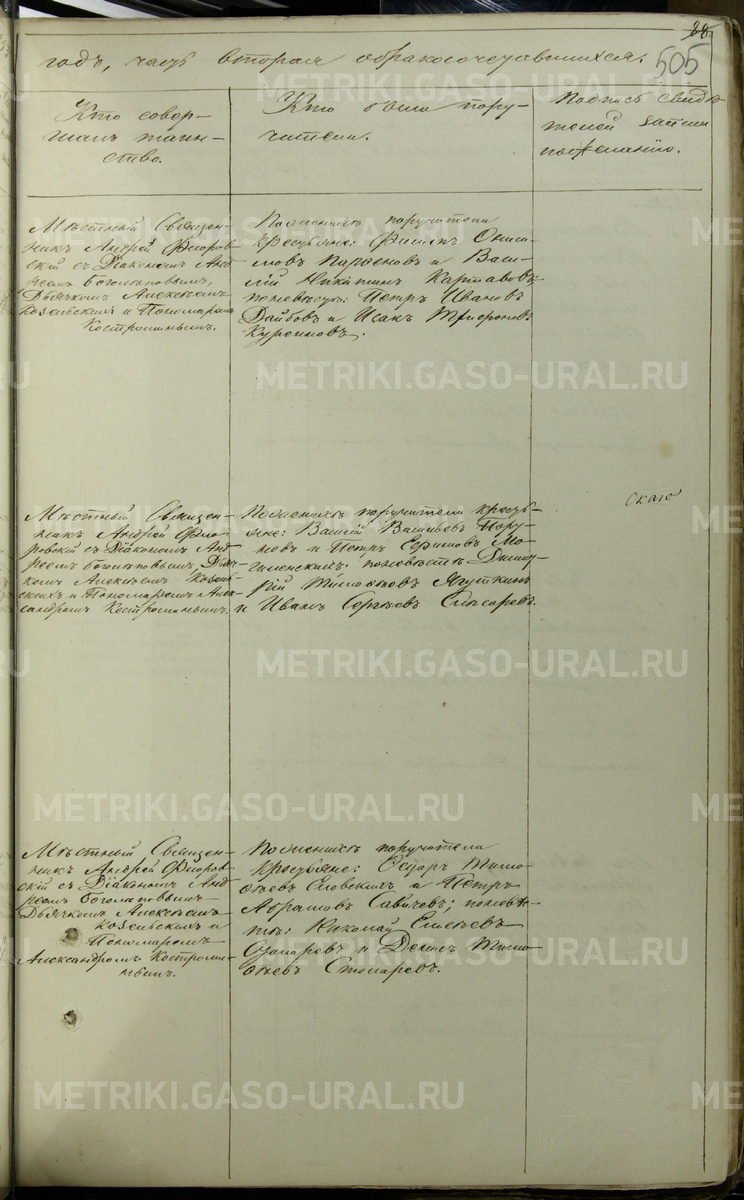 88.
505
годъ, часть вторая о бракосочетавшихся.
Кто совер-
шалъ таин-
ство.
Кто были пору-
чители.
Подпись свидѣ-
телей записи
по желанію.
Мѣстный Священ-
никъ Андрей Флоров-
скій съ Діакономъ Анд-
реемъ Боголѣповымъ,
Дьячкомъ Алексѣемъ
Козельскихъ и Пономаремъ
Костроминымъ.
По женихѣ поручители
крестьяне: Филипъ Ониси-
мовъ Парѳеновъ и Васи-
лій Никитинъ Картавовъ
по невѣстѣ: Петръ Ивановъ
и Исакъ
Мѣстный Священ-
никъ Андрей Фло-
ровскій съ Діакономъ Анд-
реемъ Боголѣповымъ, Дьяч-
комъ Алексѣемъ Козель-
скихъ и Пономаремъ Алек-
сандромъ Костроминымъ.
По женихѣ поручители кресть-
яне: Васильевъ
и Петръ Ефимовъ Мо-
по невѣстѣ: Дмит-
рій Тимоѳеевъ Ягуткинъ
и Иванъ Сергѣевъ Слѣсаревъ.
скаго
Мѣстный Священ-
никъ Андрей Флоров-
скій съ Діакономъ Анд-
реемъ Боголѣповымъ
Дьячкомъ Алексѣемъ
Козельскихъ и
Пономаремъ
Александромъ Костроми-
нымъ.
По женихѣ поручители
крестьяне: Ѳедоръ Тимо-
ѳеевъ Еловскихъ и Петръ
Абрамовъ Савичевъ; по невѣс-
тѣ: Николай Елисѣевъ
и Денисъ Тимо-
ѳеевъ Столяревъ.
METRIKI.GASO-URAL.RU